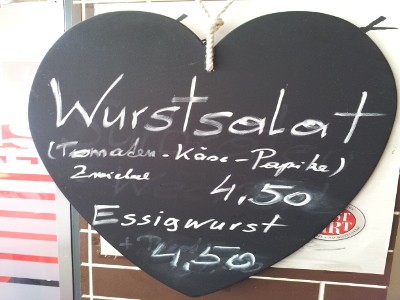 Wurstsalat
(Tomaten-Käse-Paprika)
Zwiebel
4,50
Essigwurst
4,50